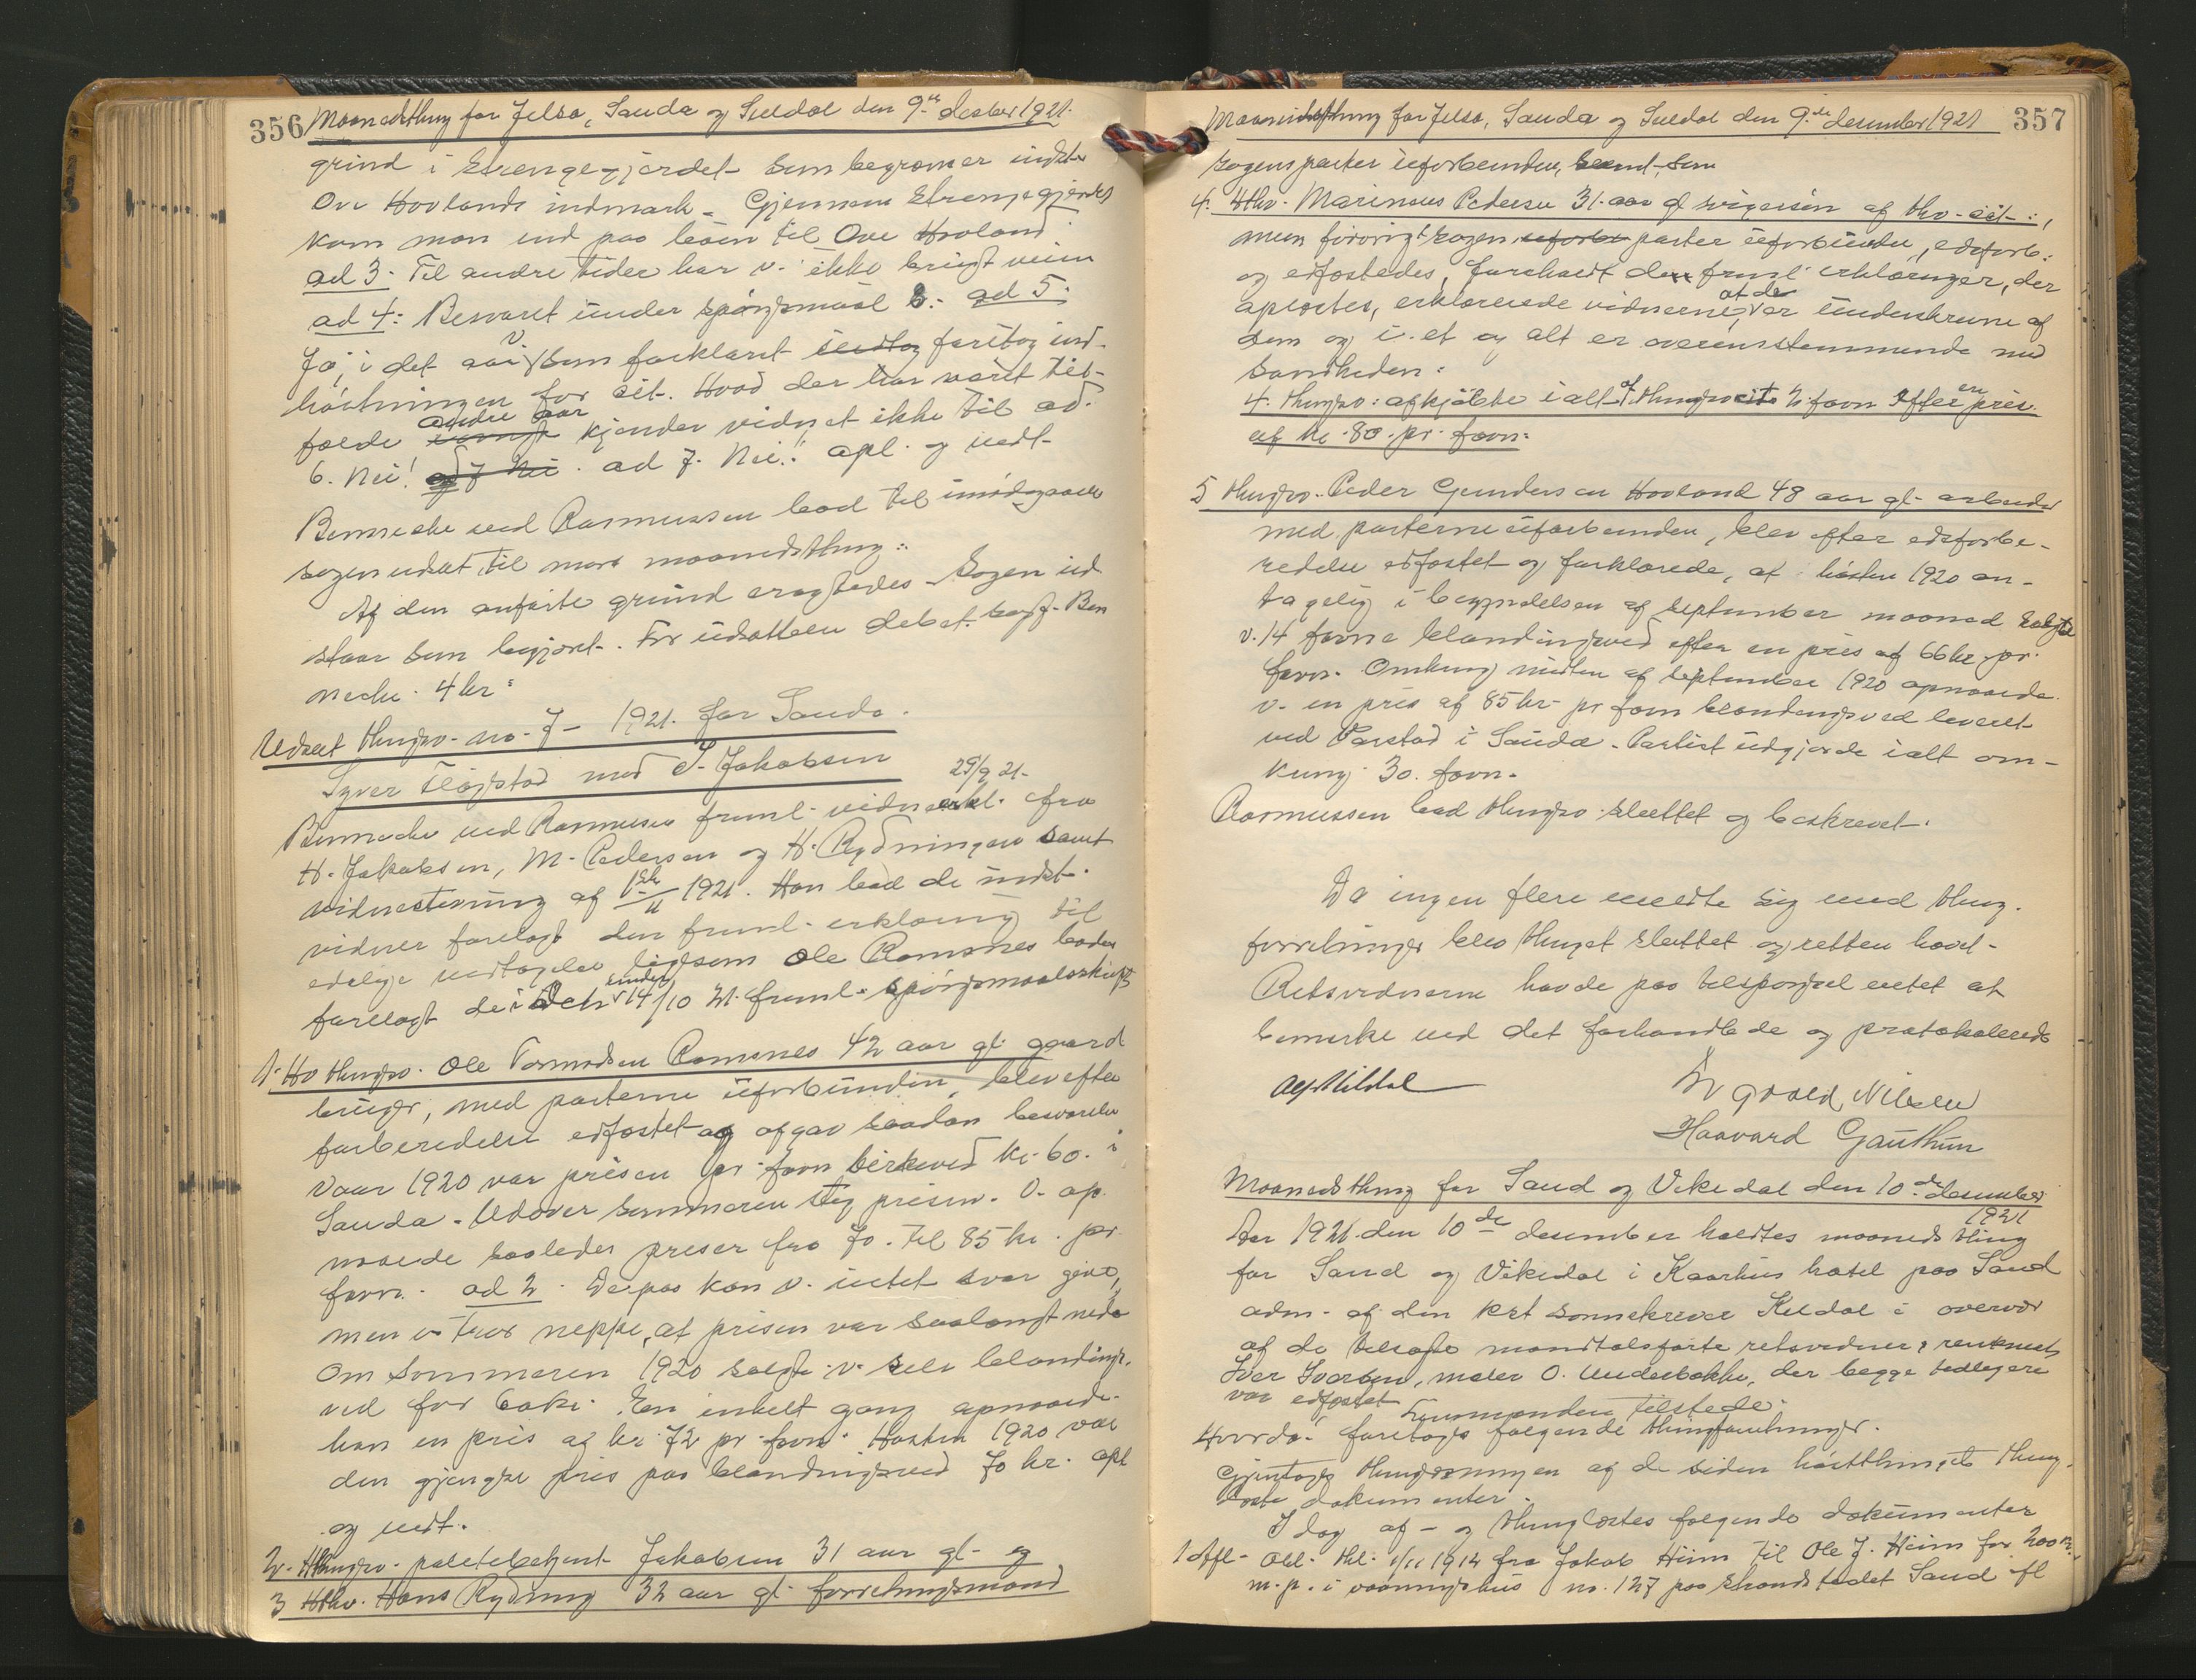 356 Maanedsthing for Jelsø, Sauda og Suldal den 9de desbr 1921.
grind i Strengegjærdet som begrænser indst.
Ove Hovlands indmark. Gjennem Strengegjerdet
kom man ind paa leien til Ove Hovland
ad 3. Til andre tider har v. ikke brugt veien
ad 4: Besvaret under spørgsmaal 3.- ad 5.
Ja, i det aar v. som forklaret foretog ind-
høstningen for cit. Hvad der har været til-
fælde andre aar kjender vidnet ikke til ad.
6. Nei! ad 7 Nei. ad 7. Nei! opl. og vedt.
Bennecke ved Rasmussen bad til imødegaaelse
sagen udsat til næste maanedsthing:
Af den anførte grund eragtedes sagen ud
staar som begjæret. For udsættelsen debet. sagf. Ben
necke. 4 kr:
Udsat thingsv. no. 7 - 1921. for Sauda.
Syver Fløgstad mod S. Jakobsen
29/9 21.
Bennecke ved Rasmussen freml. vidneerkl. fra
H. Jakobsen, M. Pedersen og H. Rydningen samt
vidnestevning af 1ste/11 1921. Han bad de indst.
vidner forelagt den freml. erklæring til
edelige vedtagelse ligesom Ole Ramsnes bades
forelagt de i den under 14/10 21. freml. spørgsmaalsskrift
1. Hv thingsv. Ole Tormodsen Ramsnes 42 aar gl. gaard
bruger, med parterne uforbunden, blev efter
forberedelse edfæstet og afgav saadan besvarelse
Vaar 1920 var prisen pr. favn birkeved kr. 60. i
Sauda. Udover sommeren steg prisen. V. op
naaede saaledes priser fra 70. til 85 kr. pr.
favn. ad 2. Derpaa kan v. intet svar give,
men v. tror neppe, at prisen var saalangt nede
Om sommeren 1920 solgte v. selv blandings-
ved for 60 kr. En enkelt gang opnaaede
han en pris af kr. 72 pr. favn. Høsten 1920 var
den gjængse pris paa blandingsved 70 kr. opl
og vedt.
2. Hthingsv. politibetjent Jakobsen 31 aar gl. og
3 Hthv. Hans Rydning 32 aar gl. forretningsmand
Maanedsthing for Jelsø, Sauda og Suldal den 9de desember 1921 357
sagens parter uforbundne, samt, som
4. Hthv. Marinius Pedersen 31 aar gl svigersøn af thv. cit.:,
men forøvrigt sagens parter uforbunden, edsforb.
og edfæstedes, foreholdt den freml. erklæringer, der
oplæstes, erklærede vidnerne, at de er underskrevne af
dem og i et og alt er overensstemmende med
sandheden:
4. thingsv: afkjøbte ialt af thingsv cit. 2 favn efter en pris
af kr. 80. pr. favn:
5 thingsv. Peder Gundersen Hovland 48 aar gl. arbeider
med parterne uforbunden, blev efter edsforbe-
redelse edfæstet og forklarede, at høsten 1920 an-
tagelig i begyndelsen af september maaned solgte
v. 14 favne blandingsved efter en pris af 66 kr. pr.
favn. Omkring midten af september 1920 opnaaede
v. en pris af 85 kr. pr favn blandingsved leveret
ved Parstad i Sauda. Partiet udgjorde ialt om-
kring 30. favn.
Rasmussen bad thingsv. sluttet og beskrevet.
Da ingen flere meldte sig med thing-
forretninger blev thinget sluttet og retten hævet.
Retsvidnerne havde paa tilspørgsel intet at
bemerke ved det forhandlede og protokollerede
Alf Kildal
Ingvald Nilsen
Haavard Gauthun
Maanedsthing for Sand og Vikedal den 10de desember
1921
Aar 1921 den 10de desember holdtes maanedsthing
for Sand og Vikedal i Kaarhus hotel paa Sand
adm. af den kst sorenskriver Kildal i overvær
af de tilsagte mandtalsførte retsvidner: rentenist
Iver Iversen, maler O. Underbakke, der begge tidligere
var edfæstet Lensmanden tilstede.
Hvorda: foretoges følgende thingforretninger.
Gjentages thinglæsningen af de siden høstthinget thing-
læste dokumenter.
Idag af- og thinglæstes følgende dokumenter
1 Afl. Obl. thl. 1/11 1914 fra Jakob Heim til Ole J. Heim for 200 kr.
m. p. i vaaningshus no. 127 paa strandstedet Sand fl